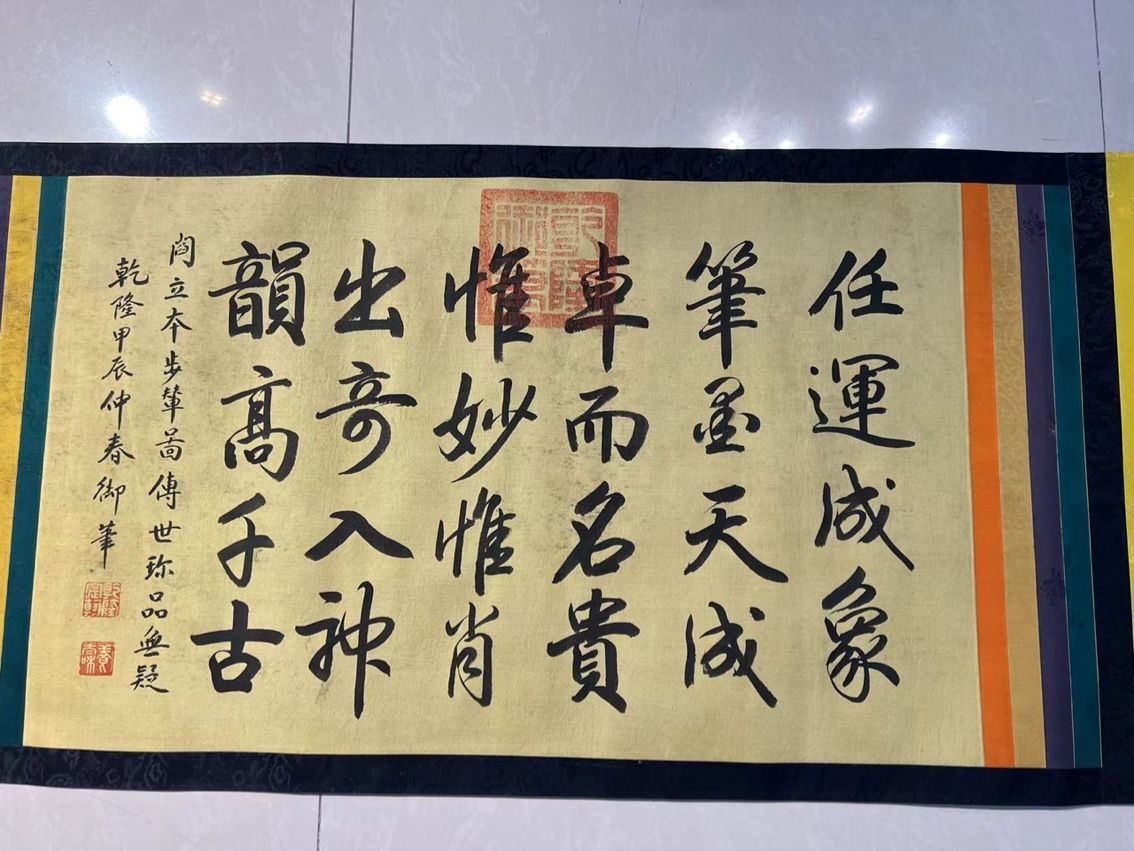 任運成象
筆墨天成
車而名貴
惟妙惟肖
出奇入神
韻高千古
閻立本步輦圖傳世珍品無疑
乾隆甲辰仲春御筆